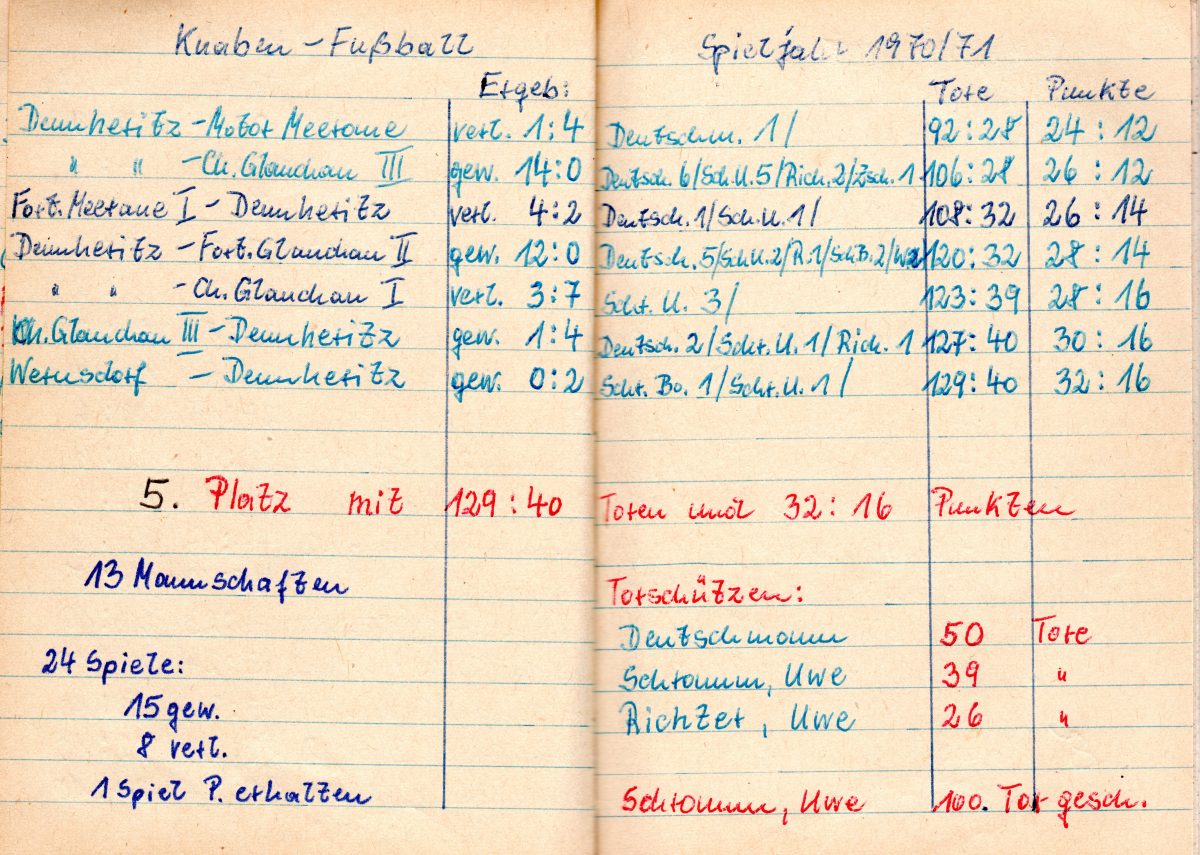 Knaben - Fußball
Ergeb:
Dennheritz - Motor Meerane verl. 1:4
" " - Ch. Glauchau III gew. 14:0
Fort. Meerane I - Dennheritz verl. 4:2
Dennheritz - Fort. Glauchau II gew. 12:0
" " - Ch. Glauchau I verl. 3:7
Ch. Glauchau III - Dennheritz gew. 1:4
Wernsdorf - Dennheritz gew. 0:2
5. Platz mit 129:40
13 Mannschaften
24 Spiele:
15 gew.
8 verl.
1 Spiel P. erhalten
Spieljahr 1970/71
Tore Punkte
Deutschm. 1/ 92:28 24:12
Deutsch. 6/Sch.U.5/Rich.2/Zsch.1 106:28 26:12
Deutsch. 1/Sch.U.1/ 108:32 26:14
Deutsch. 5/Sch.U.2/R.1/Sch.B.2/ 120:32 28:14
Schr. U. 3/ 123:39 28:16
Deutsch. 2/Schr.U.1/Rich.1 127:40 30:16
Schr. Bo. 1/Schr.U.1/ 129:40 32:16
Toren und 32:16 Punkten
Torschützen:
Deutschmann 50 Tore
Schramm, Uwe 39 "
Richter, Uwe 26 "
Schramm, Uwe 100. Tor gesch.